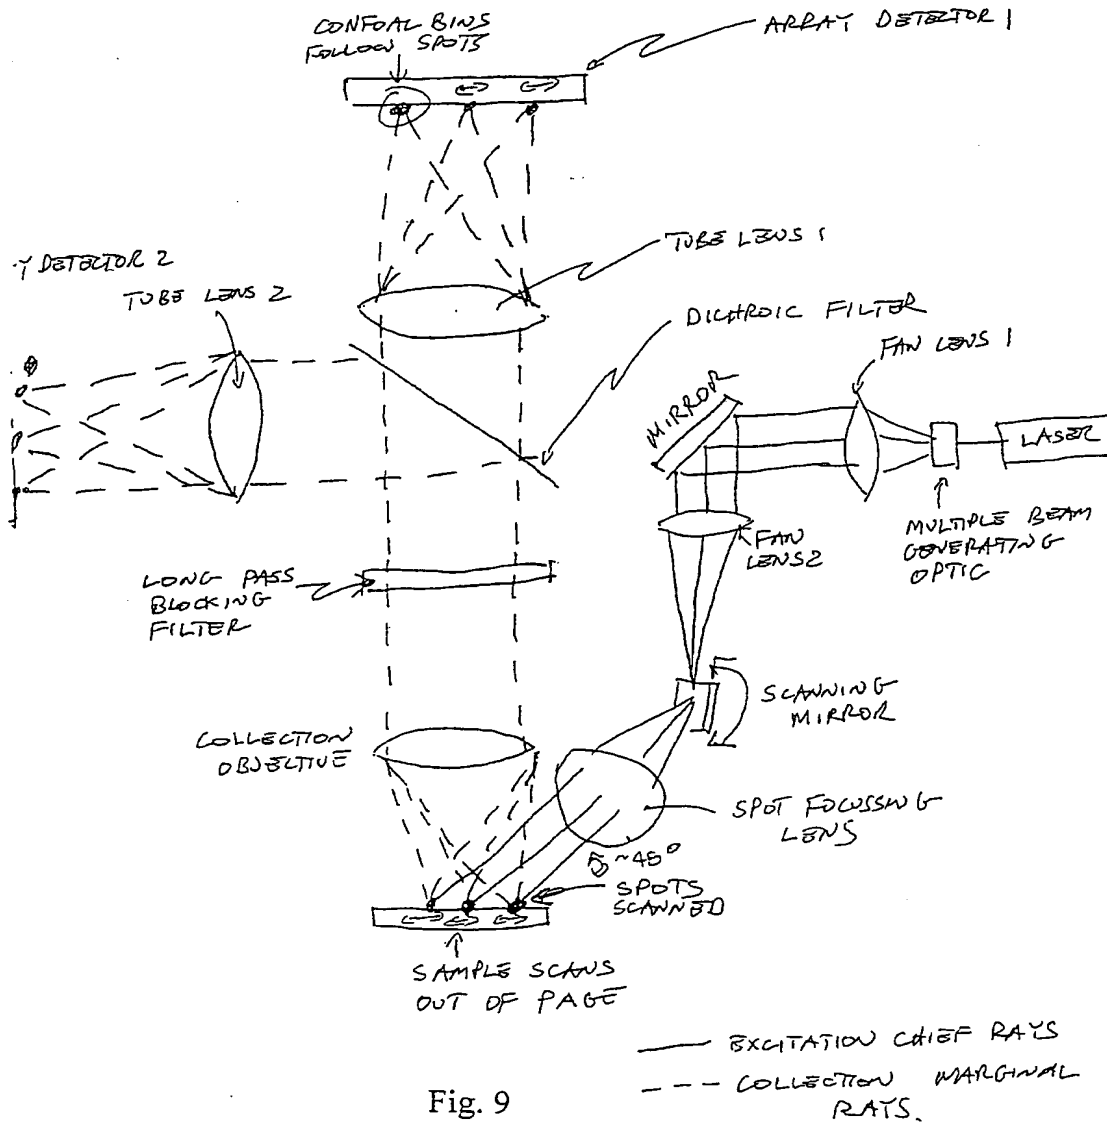 CONFOAL BINS
FOLLOW SPOTS
ARRAY DETECTOR 1
TUBE LENS 1
Y DETECTOR 2
TUBE LENS 2
DICHROIC FILTER
FAN LENS 1
MIRROR
LASER
MULTIPLE BEAM
GENERATING
OPTIC
FAN
LENS 2
LONG PASS
BLOCKING
FILTER
SCANNING
MIRROR
COLLECTION
OBJECTIVE
SPOT FOCUSSING
LENS
~45°
SPOTS
SCANNED
SAMPLE SCANS
OUT OF PAGE
EXCITATION CHIEF RAYS
COLLECTION MARGINAL
RAYS.
Fig. 9